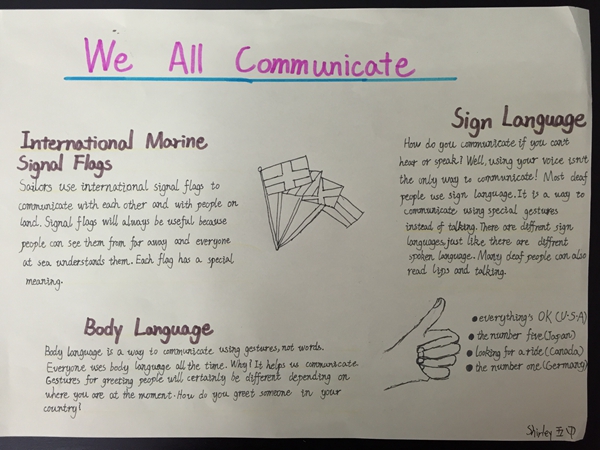 We All Communicate
International Marine
Signal Flags
Sailors use international signal flags to
communicate with each other and with people on
land. Signal flags will always be useful because
people can see them from far away and everyone
at sea understands them. Each flag has a special
meaning.
Sign Language
How do you communicate if you can't
hear or speak? Well, using your voice isn't
the only way to communicate! Most deaf
people use sign language. It is a way to
communicate using special gestures
instead of talking. There are diffrent sign
languages, just like there are diffrent
spoken language. Many deaf people can also
read lips and talking.
Body Language
Body language is a way to communicate using gestures, not words.
Everyone uses body language all the time. Why? It helps us communicate.
Gestures for greeting people will certainly be different depending on
where you are at the moment. How do you greet someone in your
country?
• everything's OK (U·S·A)
• the number five (Japan)
• looking for a ride (Canada)
• the number one (Germany)
Shirley 五中